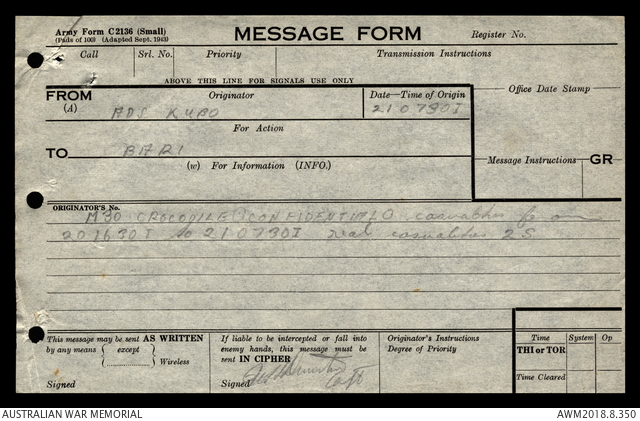 Army Form C2136 (Small)
(Pads of 100) (Adapted Sept. 1943)
MESSAGE FORM
Register No.
Call Srl. No. Priority Transmission Instructions
ABOVE THIS LINE FOR SIGNALS USE ONLY
FROM Originator Date—Time of Origin Office Date Stamp
(A) ADS KUPO 210730I
For Action
TO BARI
(w) For Information (INFO.) Message Instructions GR
ORIGINATOR'S No.
M30 CROCODILE (CONFIDENTIAL)
201630I to 210730I casualties 25
This message may be sent AS WRITTEN
by any means { except }
Wireless
Signed
If liable to be intercepted or fall into
enemy hands, this message must be
sent IN CIPHER
Signed Capt
Originator's Instructions
Degree of Priority
Time System Op
THI or TOR
Time Cleared
AUSTRALIAN WAR MEMORIAL AWM2018.8.350